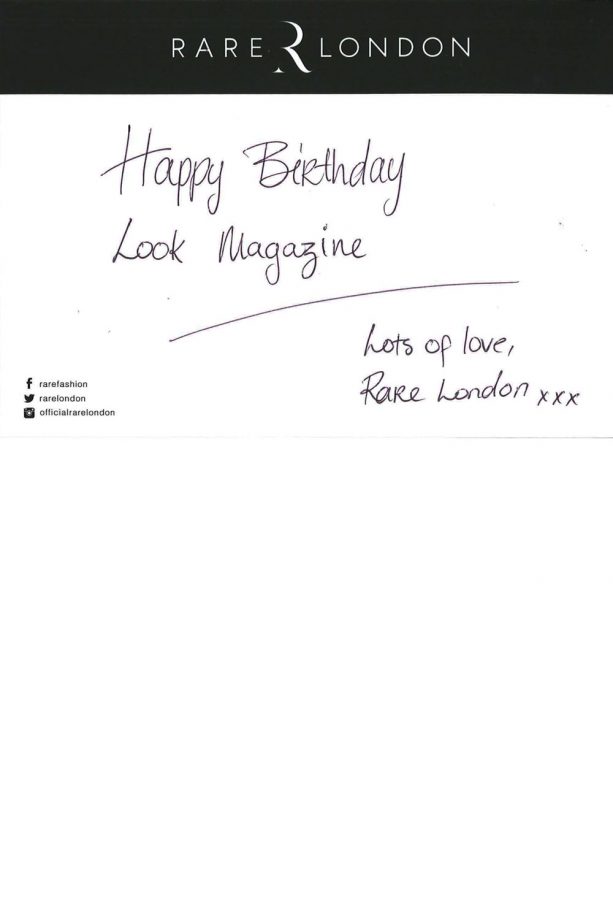 RARE R LONDON
Happy Birthday
Look Magazine
Lots of love,
Rare London xxx
rarefashion
rarelondon
officialrarelondon